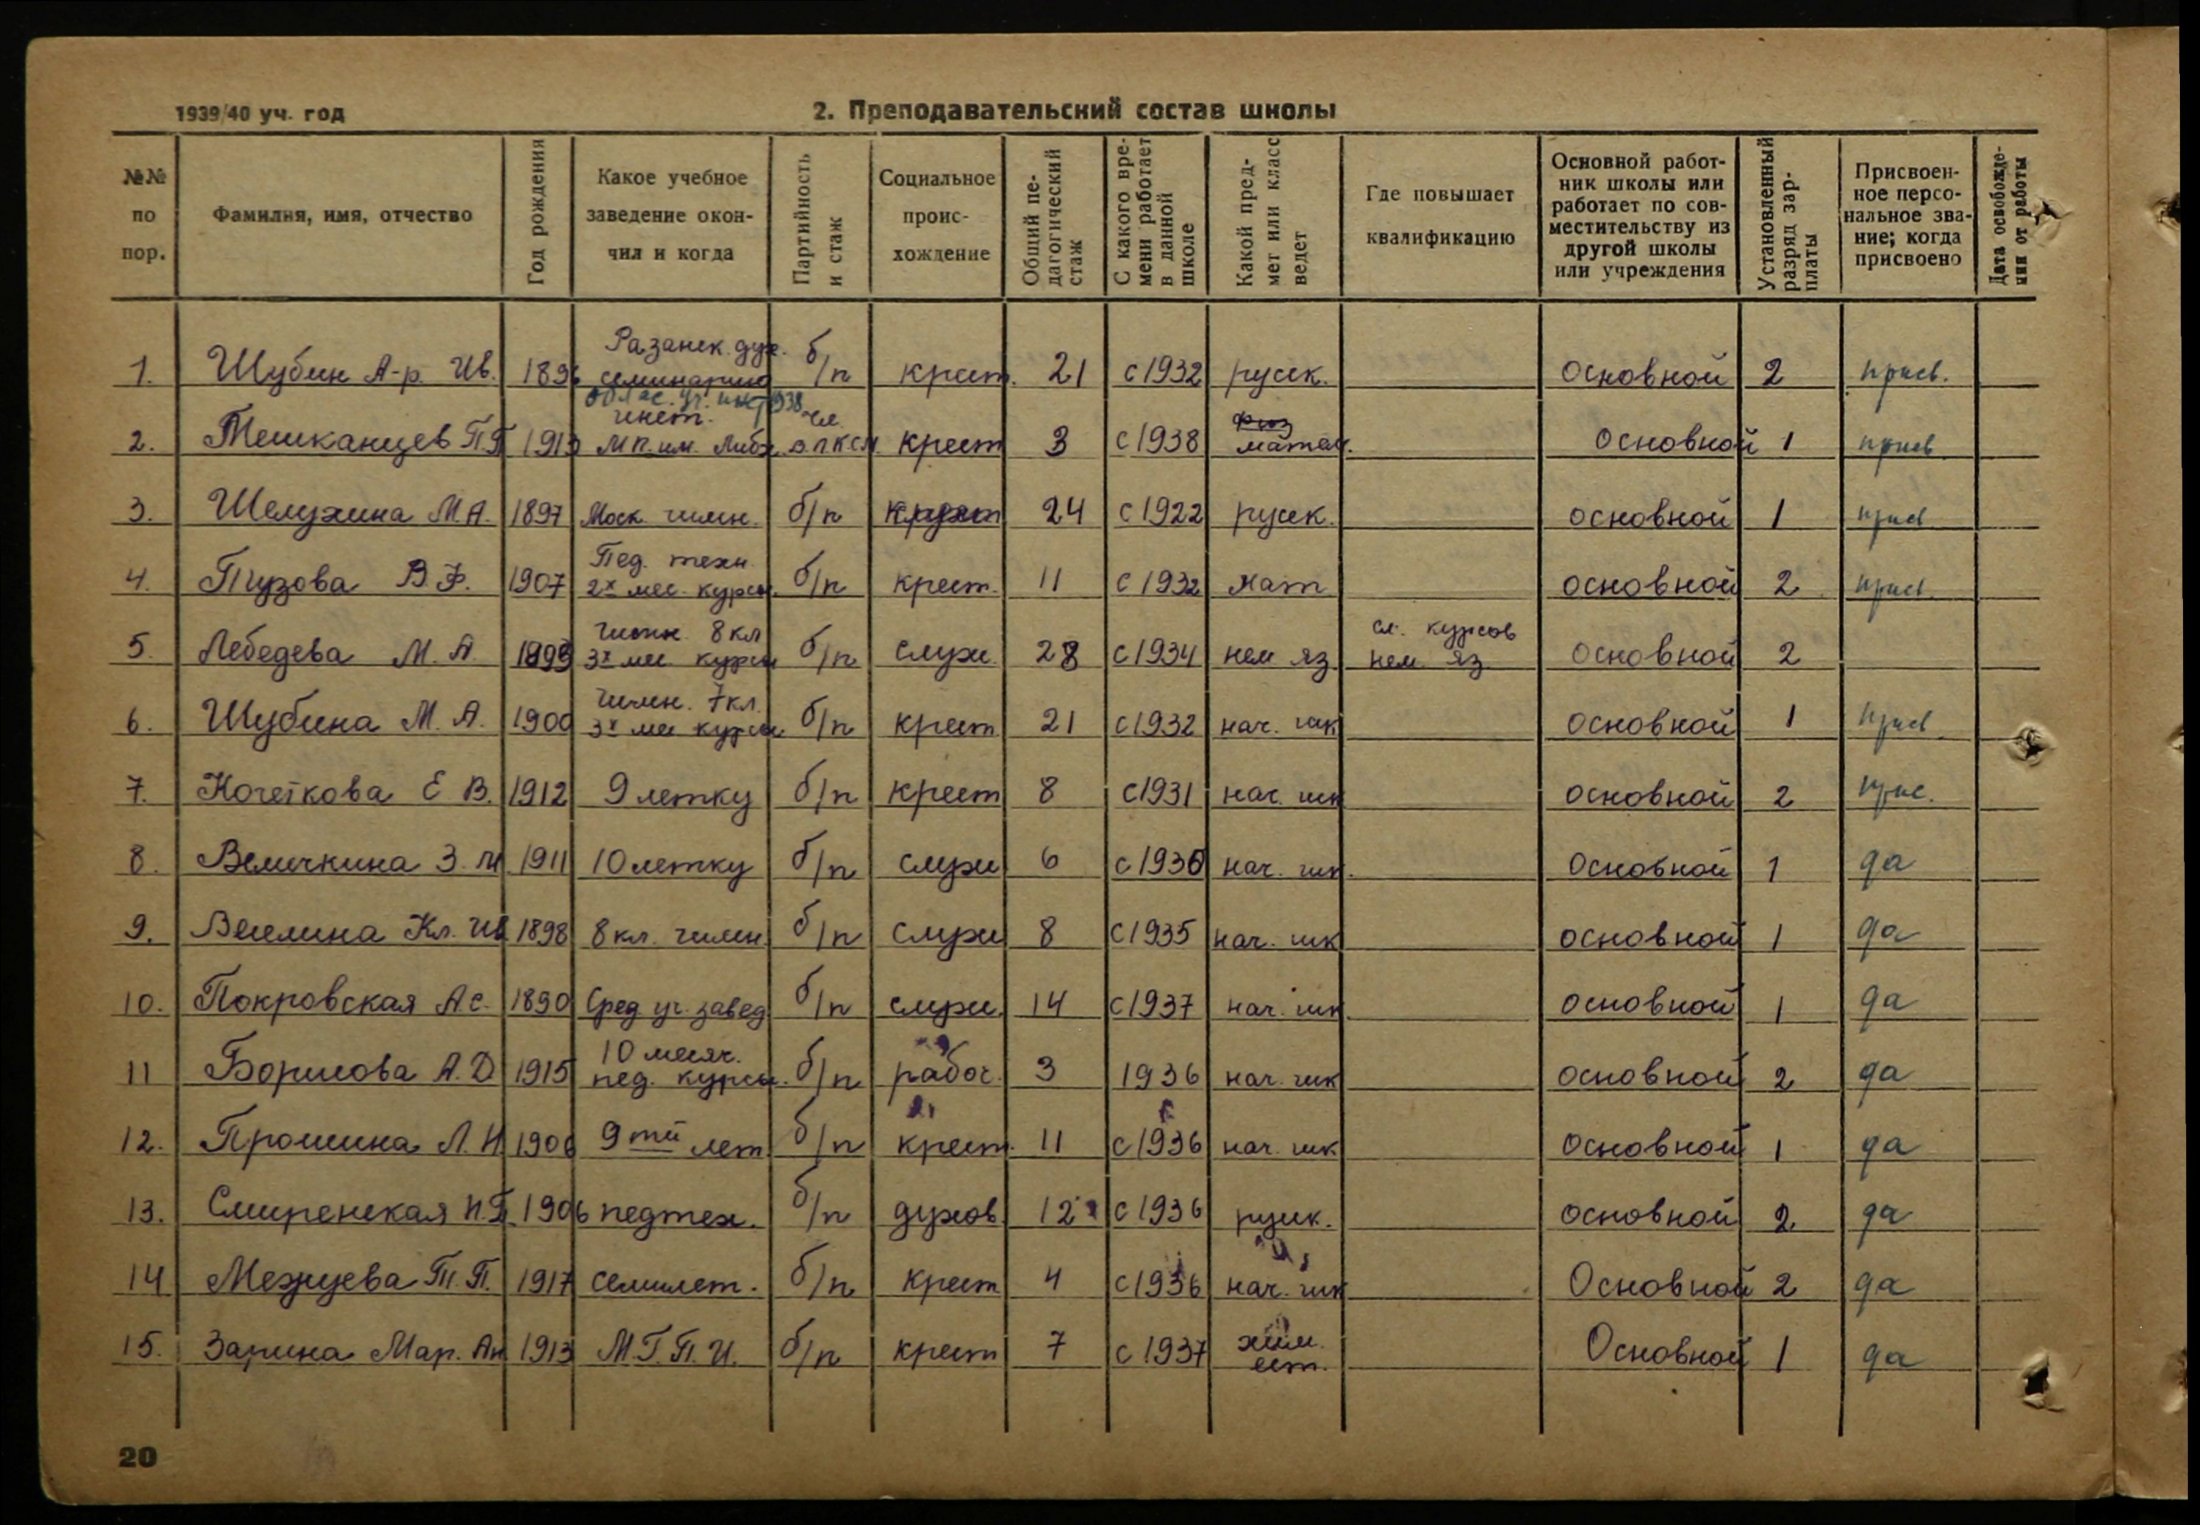 1939/40 уч. год
2. Преподавательский состав школы
№№ по пор.
Фамилия, имя, отчество
Год рождения
Какое учебное заведение окон-чил и когда
Партийность и стаж
Социальное проис-хождение
Общий пе-дагогический стаж
С какого вре-мени работает в данной школе
Какой пред-мет или класс ведет
Где повышает квалификацию
Основной работ-ник школы или работает по сов-местительству из другой школы или учреждения
Установленный разряд зар-платы
Присвоен-ное персо-нальное зва-ние; когда присвоено
Дата освобожде-ния от работы
1. Шубин А-р. Ив. 1896 Рязанск. дух. семинарию б/п крест. 21 с 1932 русск. основной 2 присв.
2. Тешканцев П. 191 инст. М П. им. Либ чл. В.Л.К.С.М. крест 3 с 1938 физ матем. основной 1 присв
3. Шелухина М.А. 1897 Моск. гимн. б/п 24 с 1922 русск. основной 1 присв
4. Пузова В. Ф. 1907 Пед. техн. 2х мес. курсы. б/п крест. 11 с 1932 мат основной 2 присв.
5. Лебедева М. А. 1893 гимн. 8 кл 3х мес. курсы б/п служ. 28 с 1934 нем яз. сл. курсов нем. яз основной 2
6. Шубина М. А. 1900 гимн. 7 кл. 3х мес курсы б/п крест 21 с 1932 нач. шк основной 1 присв
7. Кочеткова Е В. 1912 9 летку б/п крест 8 с 1931 нач. шк основной 2 прис.
8. Величкина З. 1911 10 летку б/п служ 6 с 1936 нач. шк. основной 1 да
9. Веселина Кл. Ив 1898 8 кл. гимн. б/п служ 8 с 1935 нач. шк основной 1 да
10. Покровская А с. 1890 Сред уч. завед б/п служ. 14 с 1937 нач. шк основной 1 да
11 Борисова А. Д 1915 10 месяч. пед. курсы. б/п рабоч. 3 1936 нач. шк основной 2 да
12. Прошина Л. Н 1906 9 тй лет б/п крест. 11 с 1936 нач. шк основной 1 да
13. Смиренская Н. 1906 педтех. б/п духов 12 с 1936 русск. основной 2 да
14 Межуева Т. П. 1917 семилет. б/п крест 4 с 1936 нач. шк Основной 2 да
15. Зарина Мар. Ан 1913 М. Г. П. И. б/п крест 7 с 1937 хим. ест. Основной 1 да
20